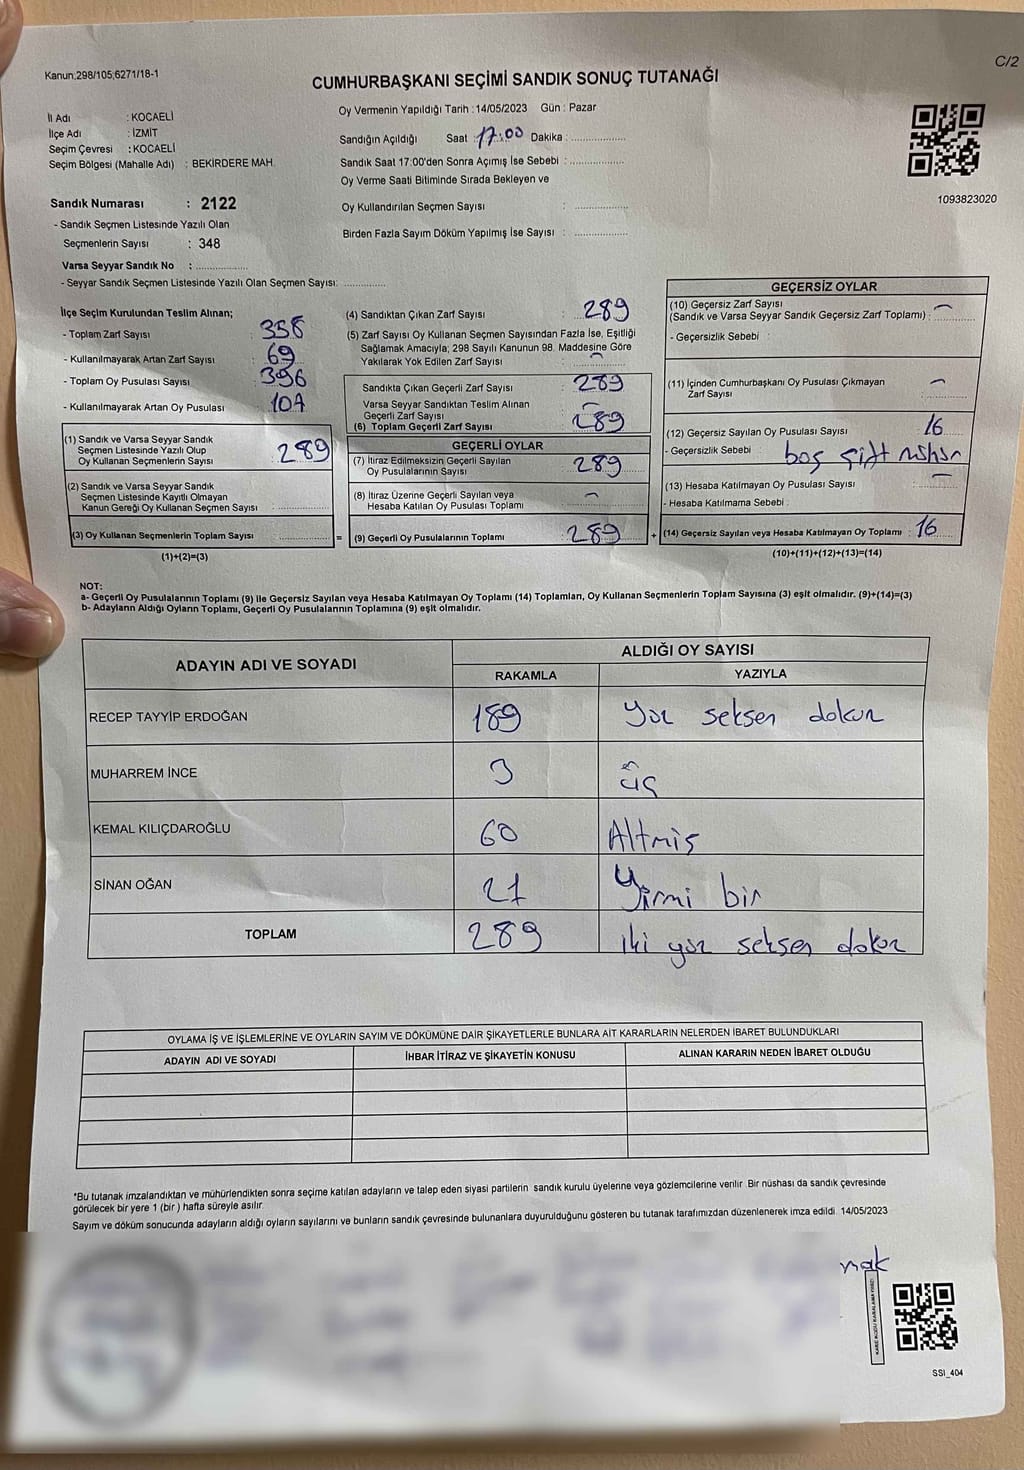 Kanun;298/105;6271/18-1
C/2
CUMHURBAŞKANI SEÇİMİ SANDIK SONUÇ TUTANAĞI
İl Adı : KOCAELİ
İlçe Adı : İZMİT
Seçim Çevresi : KOCAELİ
Seçim Bölgesi (Mahalle Adı) : BEKİRDERE MAH.
Sandık Numarası : 2122
- Sandık Seçmen Listesinde Yazılı Olan
Seçmenlerin Sayısı : 348
Varsa Seyyar Sandık No : ................
- Seyyar Sandık Seçmen Listesinde Yazılı Olan Seçmen Sayısı: ............
Oy Vermenin Yapıldığı Tarih : 14/05/2023 Gün : Pazar
Sandığın Açıldığı Saat : 17:00 Dakika : ................
Sandık Saat 17:00'den Sonra Açımış İse Sebebi : ................
Oy Verme Saati Bitiminde Sırada Bekleyen ve
Oy Kullandırılan Seçmen Sayısı : ................
Birden Fazla Sayım Döküm Yapılmış İse Sayısı : ................
1093823020
İlçe Seçim Kurulundan Teslim Alınan;
- Toplam Zarf Sayısı : 358
- Kullanılmayarak Artan Zarf Sayısı : 69
- Toplam Oy Pusulası Sayısı : 396
- Kullanılmayarak Artan Oy Pusulası : 107
(1) Sandık ve Varsa Seyyar Sandık
Seçmen Listesinde Yazılı Olup
Oy Kullanan Seçmenlerin Sayısı : 289
(2) Sandık ve Varsa Seyyar Sandık
Seçmen Listesinde Kayıtlı Olmayan
Kanun Gereği Oy Kullanan Seçmen Sayısı : ................
(3) Oy Kullanan Seçmenlerin Toplam Sayısı : ................ =
(1)+(2)=(3)
(4) Sandıktan Çıkan Zarf Sayısı : 289
(5) Zarf Sayısı Oy Kullanan Seçmen Sayısından Fazla İse, Eşitliği
Sağlamak Amacıyla; 298 Sayılı Kanunun 98. Maddesine Göre
Yakılarak Yok Edilen Zarf Sayısı : -
Sandıkta Çıkan Geçerli Zarf Sayısı : 289
Varsa Seyyar Sandıktan Teslim Alınan
Geçerli Zarf Sayısı : -
(6) Toplam Geçerli Zarf Sayısı : 289
GEÇERLİ OYLAR
(7) İtiraz Edilmeksizin Geçerli Sayılan
Oy Pusulalarının Sayısı : 289
(8) İtiraz Üzerine Geçerli Sayılan veya
Hesaba Katılan Oy Pusulası Toplamı : -
(9) Geçerli Oy Pusulalarının Toplamı : 289 +
GEÇERSİZ OYLAR
(10) Geçersiz Zarf Sayısı
(Sandık ve Varsa Seyyar Sandık Geçersiz Zarf Toplamı) : -
- Geçersizlik Sebebi :
(11) İçinden Cumhurbaşkanı Oy Pusulası Çıkmayan
Zarf Sayısı : -
(12) Geçersiz Sayılan Oy Pusulası Sayısı : 16
- Geçersizlik Sebebi : boş çift mühür
(13) Hesaba Katılmayan Oy Pusulası Sayısı : -
- Hesaba Katılmama Sebebi :
(14) Geçersiz Sayılan veya Hesaba Katılmayan Oy Toplamı : 16
(10)+(11)+(12)+(13)=(14)
NOT:
a- Geçerli Oy Pusulalarının Toplamı (9) ile Geçersiz Sayılan veya Hesaba Katılmayan Oy Toplamı (14) Toplamları, Oy Kullanan Seçmenlerin Toplam Sayısına (3) eşit olmalıdır. (9)+(14)=(3)
b- Adayların Aldığı Oyların Toplamı, Geçerli Oy Pusulalarının Toplamına (9) eşit olmalıdır.
ADAYIN ADI VE SOYADI
ALDIĞI OY SAYISI
RAKAMLA YAZIYLA
RECEP TAYYİP ERDOĞAN 189 yüz seksen dokuz
MUHARREM İNCE 3 üç
KEMAL KILIÇDAROĞLU 60 Altmış
SİNAN OĞAN 21 Yirmi bir
TOPLAM 289 iki yüz seksen dokuz
OYLAMA İŞ VE İŞLEMLERİNE VE OYLARIN SAYIM VE DÖKÜMÜNE DAİR ŞİKAYETLERLE BUNLARA AİT KARARLARIN NELERDEN İBARET BULUNDUKLARI
ADAYIN ADI VE SOYADI İHBAR İTİRAZ VE ŞİKAYETİN KONUSU ALINAN KARARIN NEDEN İBARET OLDUĞU
*Bu tutanak imzalandıktan ve mühürlendikten sonra seçime katılan adayların ve talep eden siyasi partilerin sandık kurulu üyelerine veya gözlemcilerine verilir. Bir nüshası da sandık çevresinde
görülecek bir yere 1 (bir) hafta süreyle asılır.
Sayım ve döküm sonucunda adayların aldığı oyların sayılarını ve bunların sandık çevresinde bulunanlara duyurulduğunu gösteren bu tutanak tarafımızdan düzenlenerek imza edildi. 14/05/2023
SSI_404